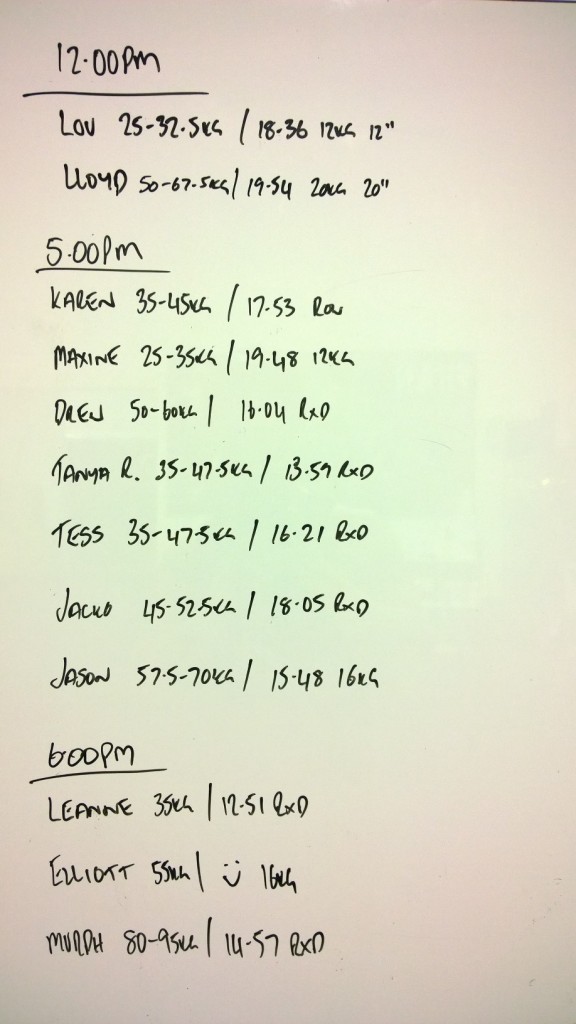 12.00PM
LOU 25-32.5KG / 18-36 12KG 12"
LLOYD 50-67.5KG / 19.54 20KG 20"
5.00PM
KAREN 35-45KG / 17.53 Row
MAXINE 25-35KG / 19.48 12KG
DREW 50-60KG / 16.04 RxD
TANYA R. 35-47.5KG / 13.59 RxD
TESS 35-47.5KG / 16.21 RxD
JACKO 45-52.5KG / 18.05 RxD
JASON 57.5-70KG / 15-48 16KG
6.00PM
LEANNE 35KG / 12.51 RxD
ELLIOTT 55KG / 16KG
MURPH 80-95KG / 14-57 RxD